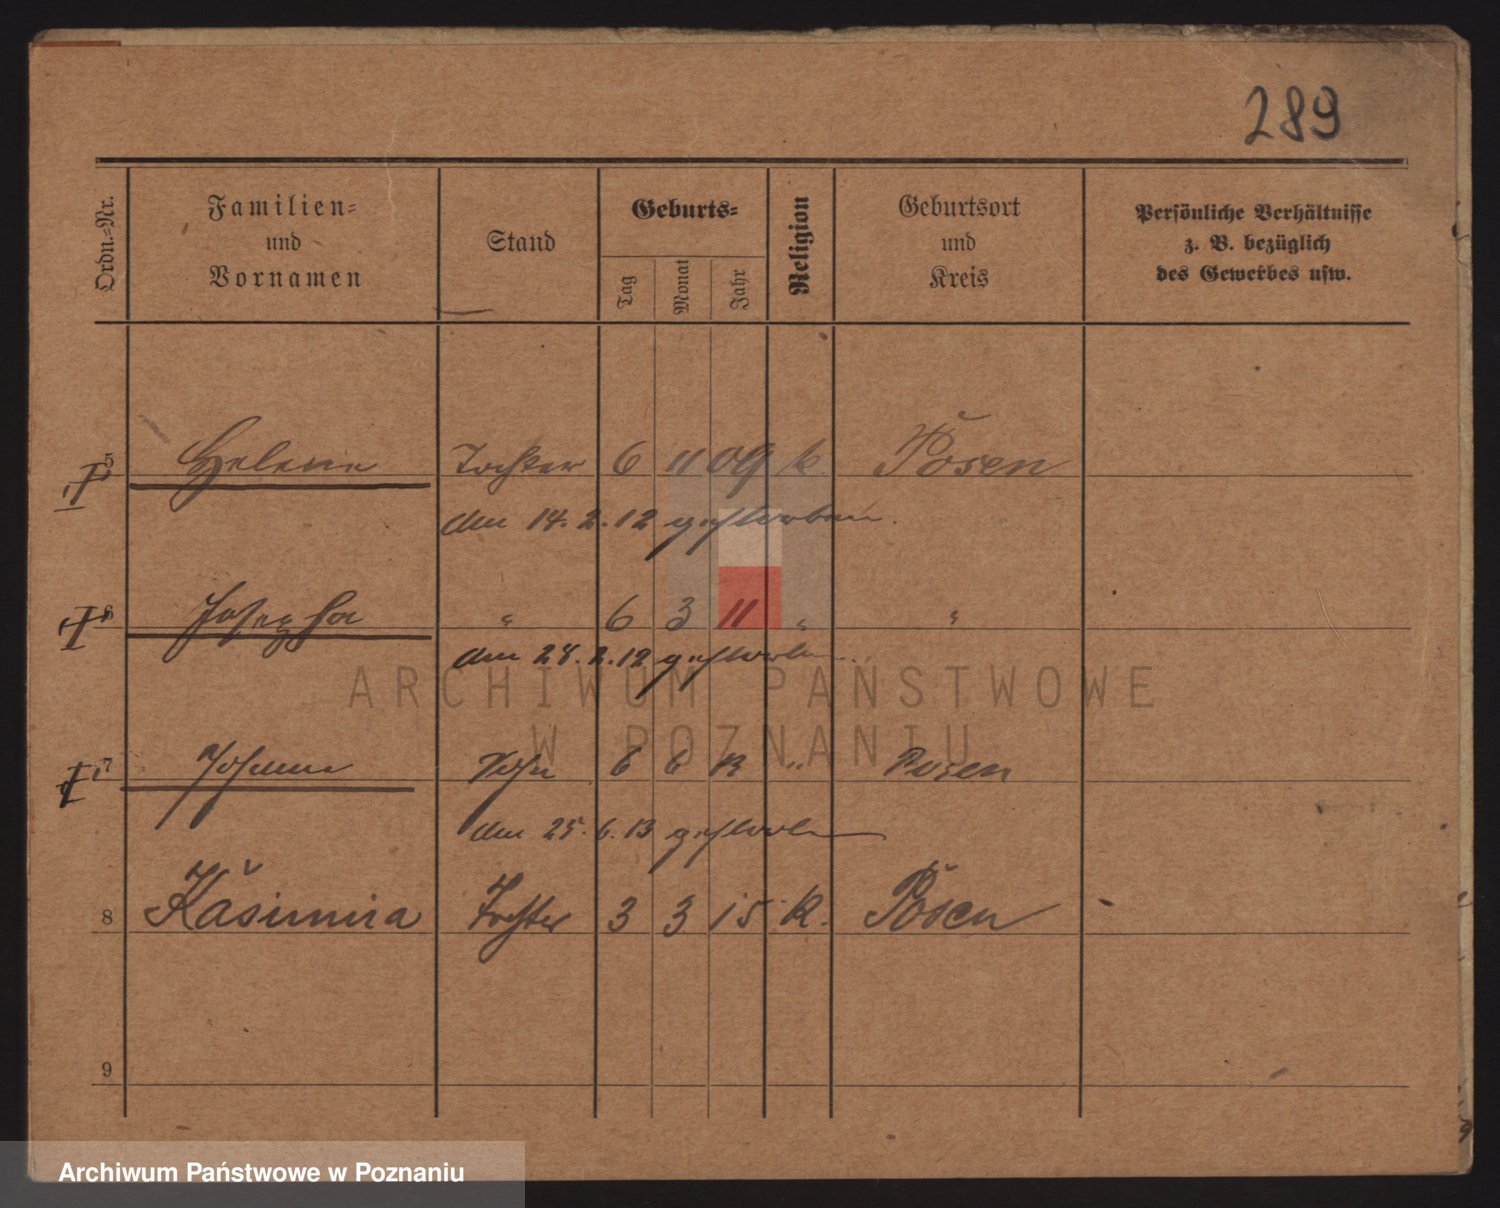 289
Ordn.-Nr.
Familien-
und
Vornamen
Stand
Geburts-
Tag
Monat
Jahr
Religion
Geburtsort
und
Kreis
Persönliche Verhältnisse
z. B. bezüglich
des Gewerbes usw.
5 Helene Tochter 6 11 09 k. Posen
den 14.2.12 gestorben.
6 Josepha " 6 3 11 " "
den 28.2.12 gestorben.
ARCHIWUM PAŃSTWOWE
W POZNANIU
7 Johann Sohn 6 6 13 " Posen
den 25.6.13 gestorben
8 Kasimira Tochter 3 3 15 k. Posen
9
Archiwum Państwowe w Poznaniu